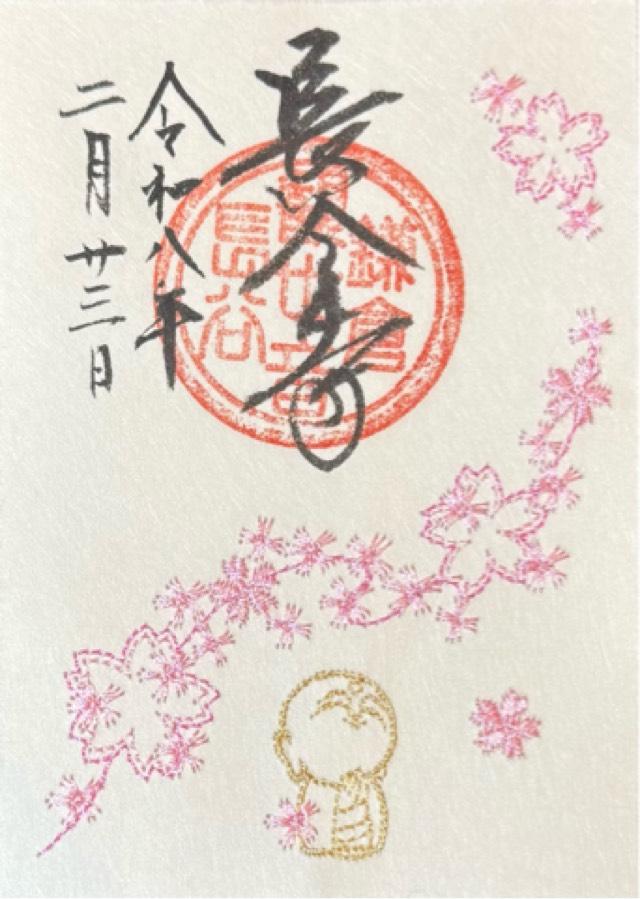 長谷寺
鎌倉
長谷
令和八年
二月廿三日